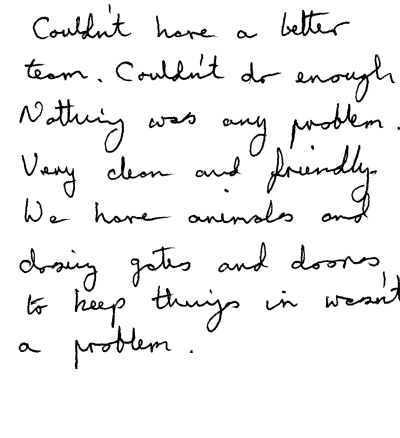 Couldn't have a better
team. Couldn't do enough
Nothing was any problem.
Very clean and friendly.
We have animals and
closing gates and doors,
to keep things in wasn't
a problem.